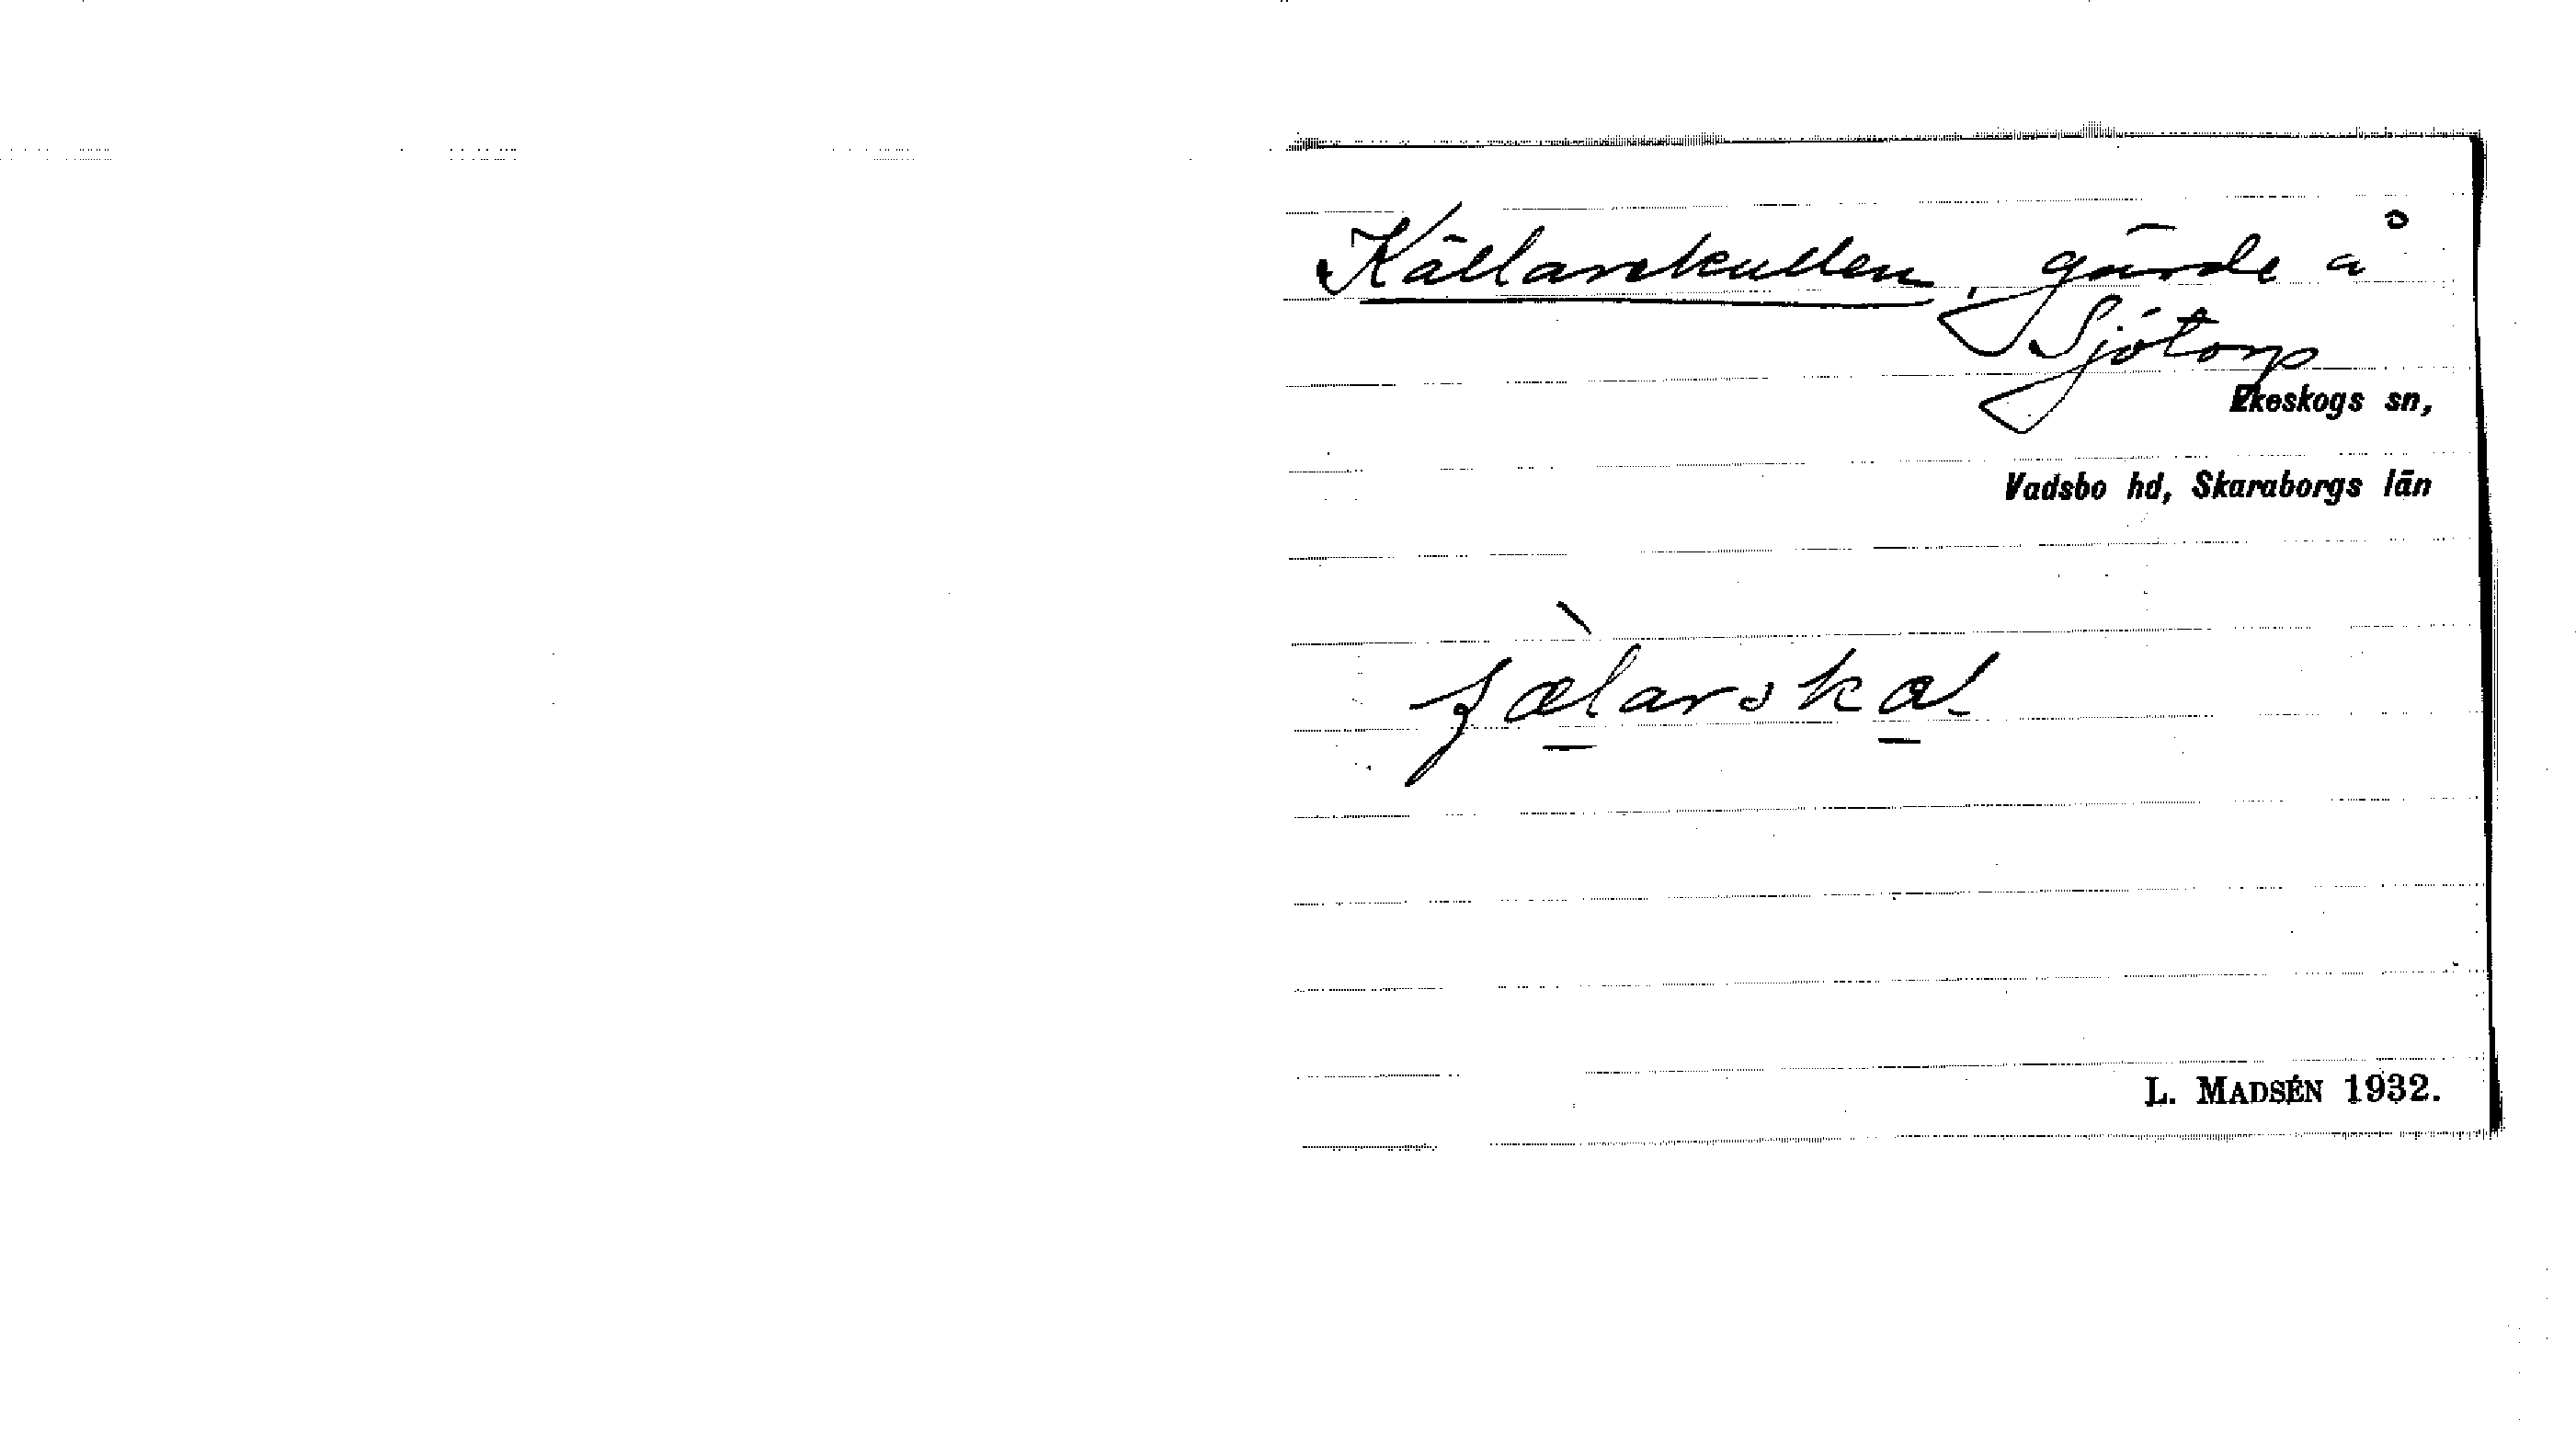 Källarekullen, gärde å
Sjötorp
Ekeskogs sn,
Vadsbo hd, Skaraborgs län
L. MADSÉN 1932.